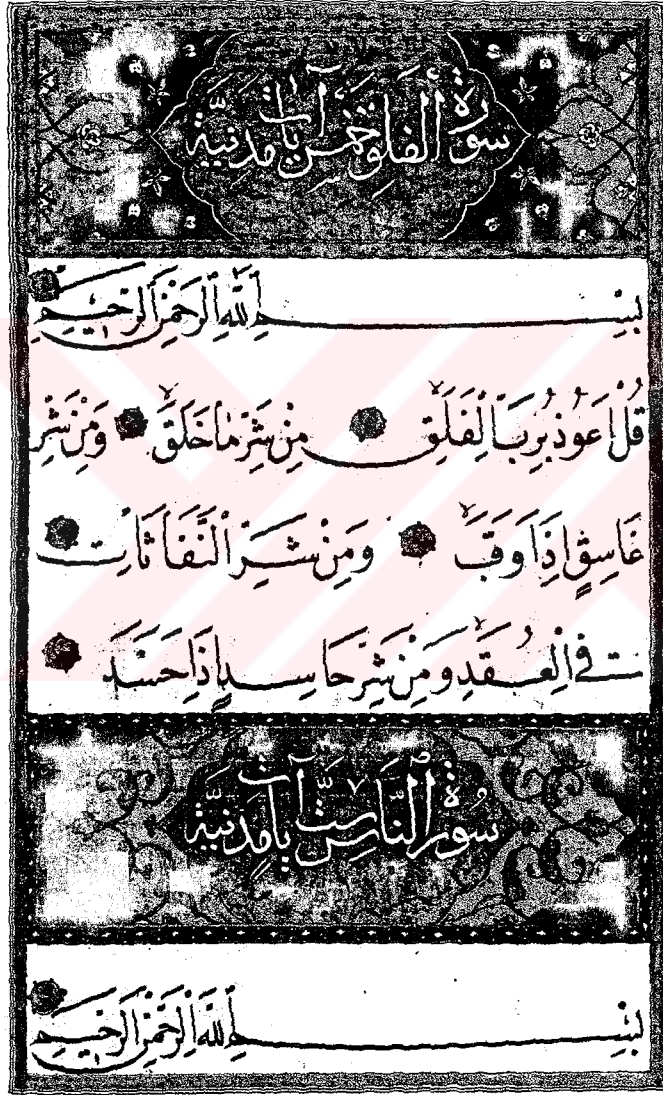 سورة الفلق خمس آيات مدنية
بِسْمِ اللَّهِ الرَّحْمٰنِ الرَّحِيمِ
قُلْ اَعُوذُ بِرَبِّ الْفَلَقِ مِنْ شَرِّ مَا خَلَقَ وَمِنْ شَرِّ
غَاسِقٍ اِذَا وَقَبَ وَمِنْ شَرِّ النَّفَّاثَاتِ
فِى الْعُقَدِ وَمِنْ شَرِّ حَاسِدٍ اِذَا حَسَدَ
سورة الناس ست آيات مدنية
بِسْمِ اللَّهِ الرَّحْمٰنِ الرَّحِيمِ